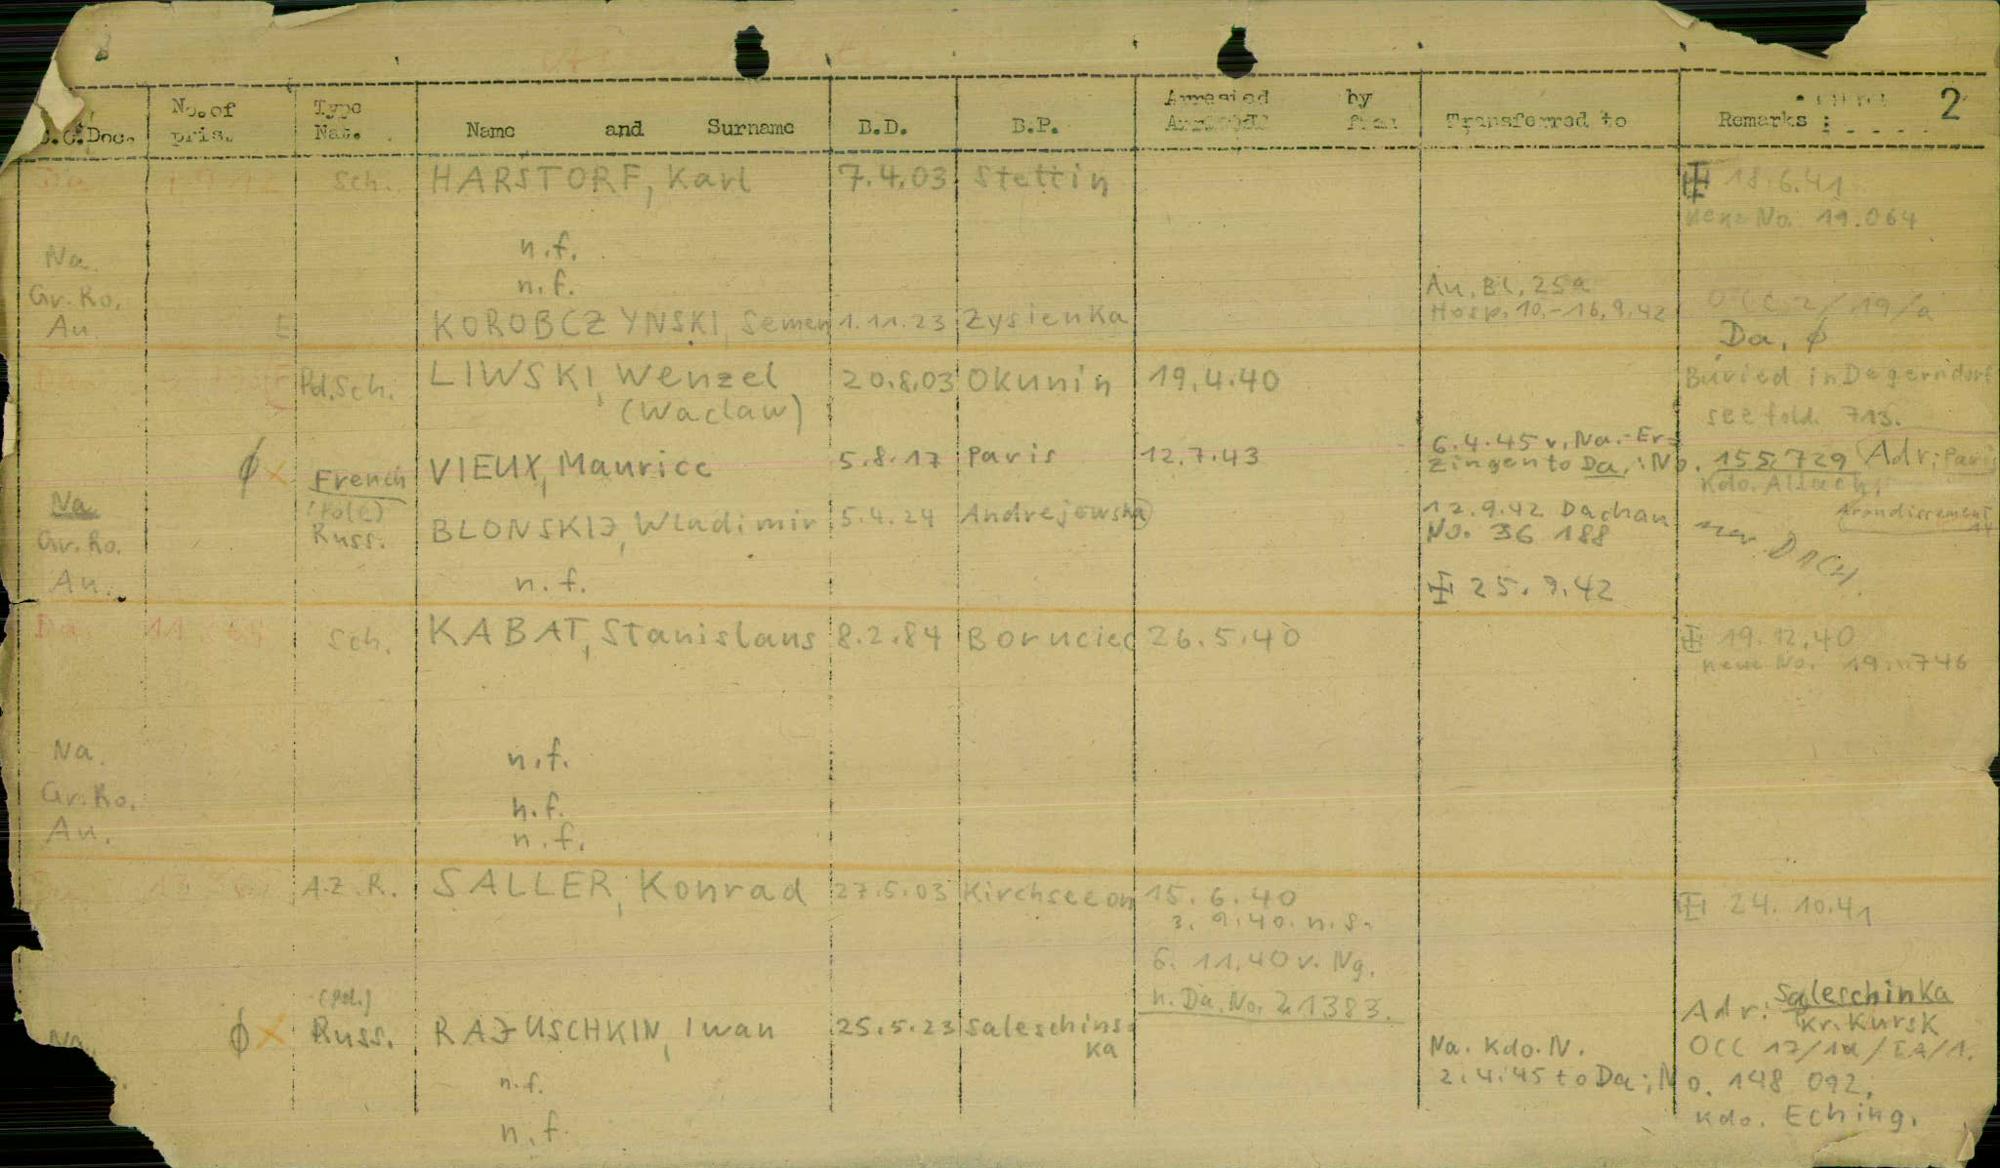 2
C.C.Doc. No. of pris. Type Nat. Name and Surname B.D. B.P. Arrested by Transferred to Remarks :
Da Sch. HARSTORF, Karl 7.4.03 Stettin 18.6.41
No. 19.064
Na. n.f.
Gr.Ro. n.f. Au, Bl, 25a
Au. E KOROBCZYNSKI, Semen 1.11.23 Zysienka Hosp. 10.-16.9.42 OCC 2/19/a
Da, ϕ
Da. Pol.Sch. LIWSKI, Wenzel 20.8.03 Okunin 19.4.40 Buried in Degerndorf
(Waclaw) see fold. 713.
ϕ x French VIEUX, Maurice 5.8.17 Paris 12.7.43 6.4.45 v. Na.-Er=
zingen to Da,: No. 155.729 Adr: Paris
Kdo. Allach,
Na (Pole) Arondissement 14
Gr.Ro. Russ. BLONSKIJ, Wladimir 5.4.24 Andrejewska 12.9.42 Dachau
No. 36 188 DACH.
Au. n.f. 25.9.42
Da. Sch. KABAT, Stanislaus 8.2.84 Boruciec 26.5.40 19.12.40
neue No.
Na. n.f.
Gr.Ro. n.f.
Au. n.f.
A.Z.R. SALLER, Konrad 27.5.03 Kirchseeon 15.6.40 24.10.41
3. 9.40. n. S.
6. 11.40 v. Ng.
n. Da. No. 21383.
(Pol.) Adr: Saleschinka
Na. ϕ x Russ. RAJUSCHKIN, Iwan 25.5.23 Saleschins= Kr. Kursk
ka Na. Kdo. N. OCC 17/1a/EA/1.
n.f. 2.4.45 to Da; No. 148 092,
n.f. Kdo. Eching.